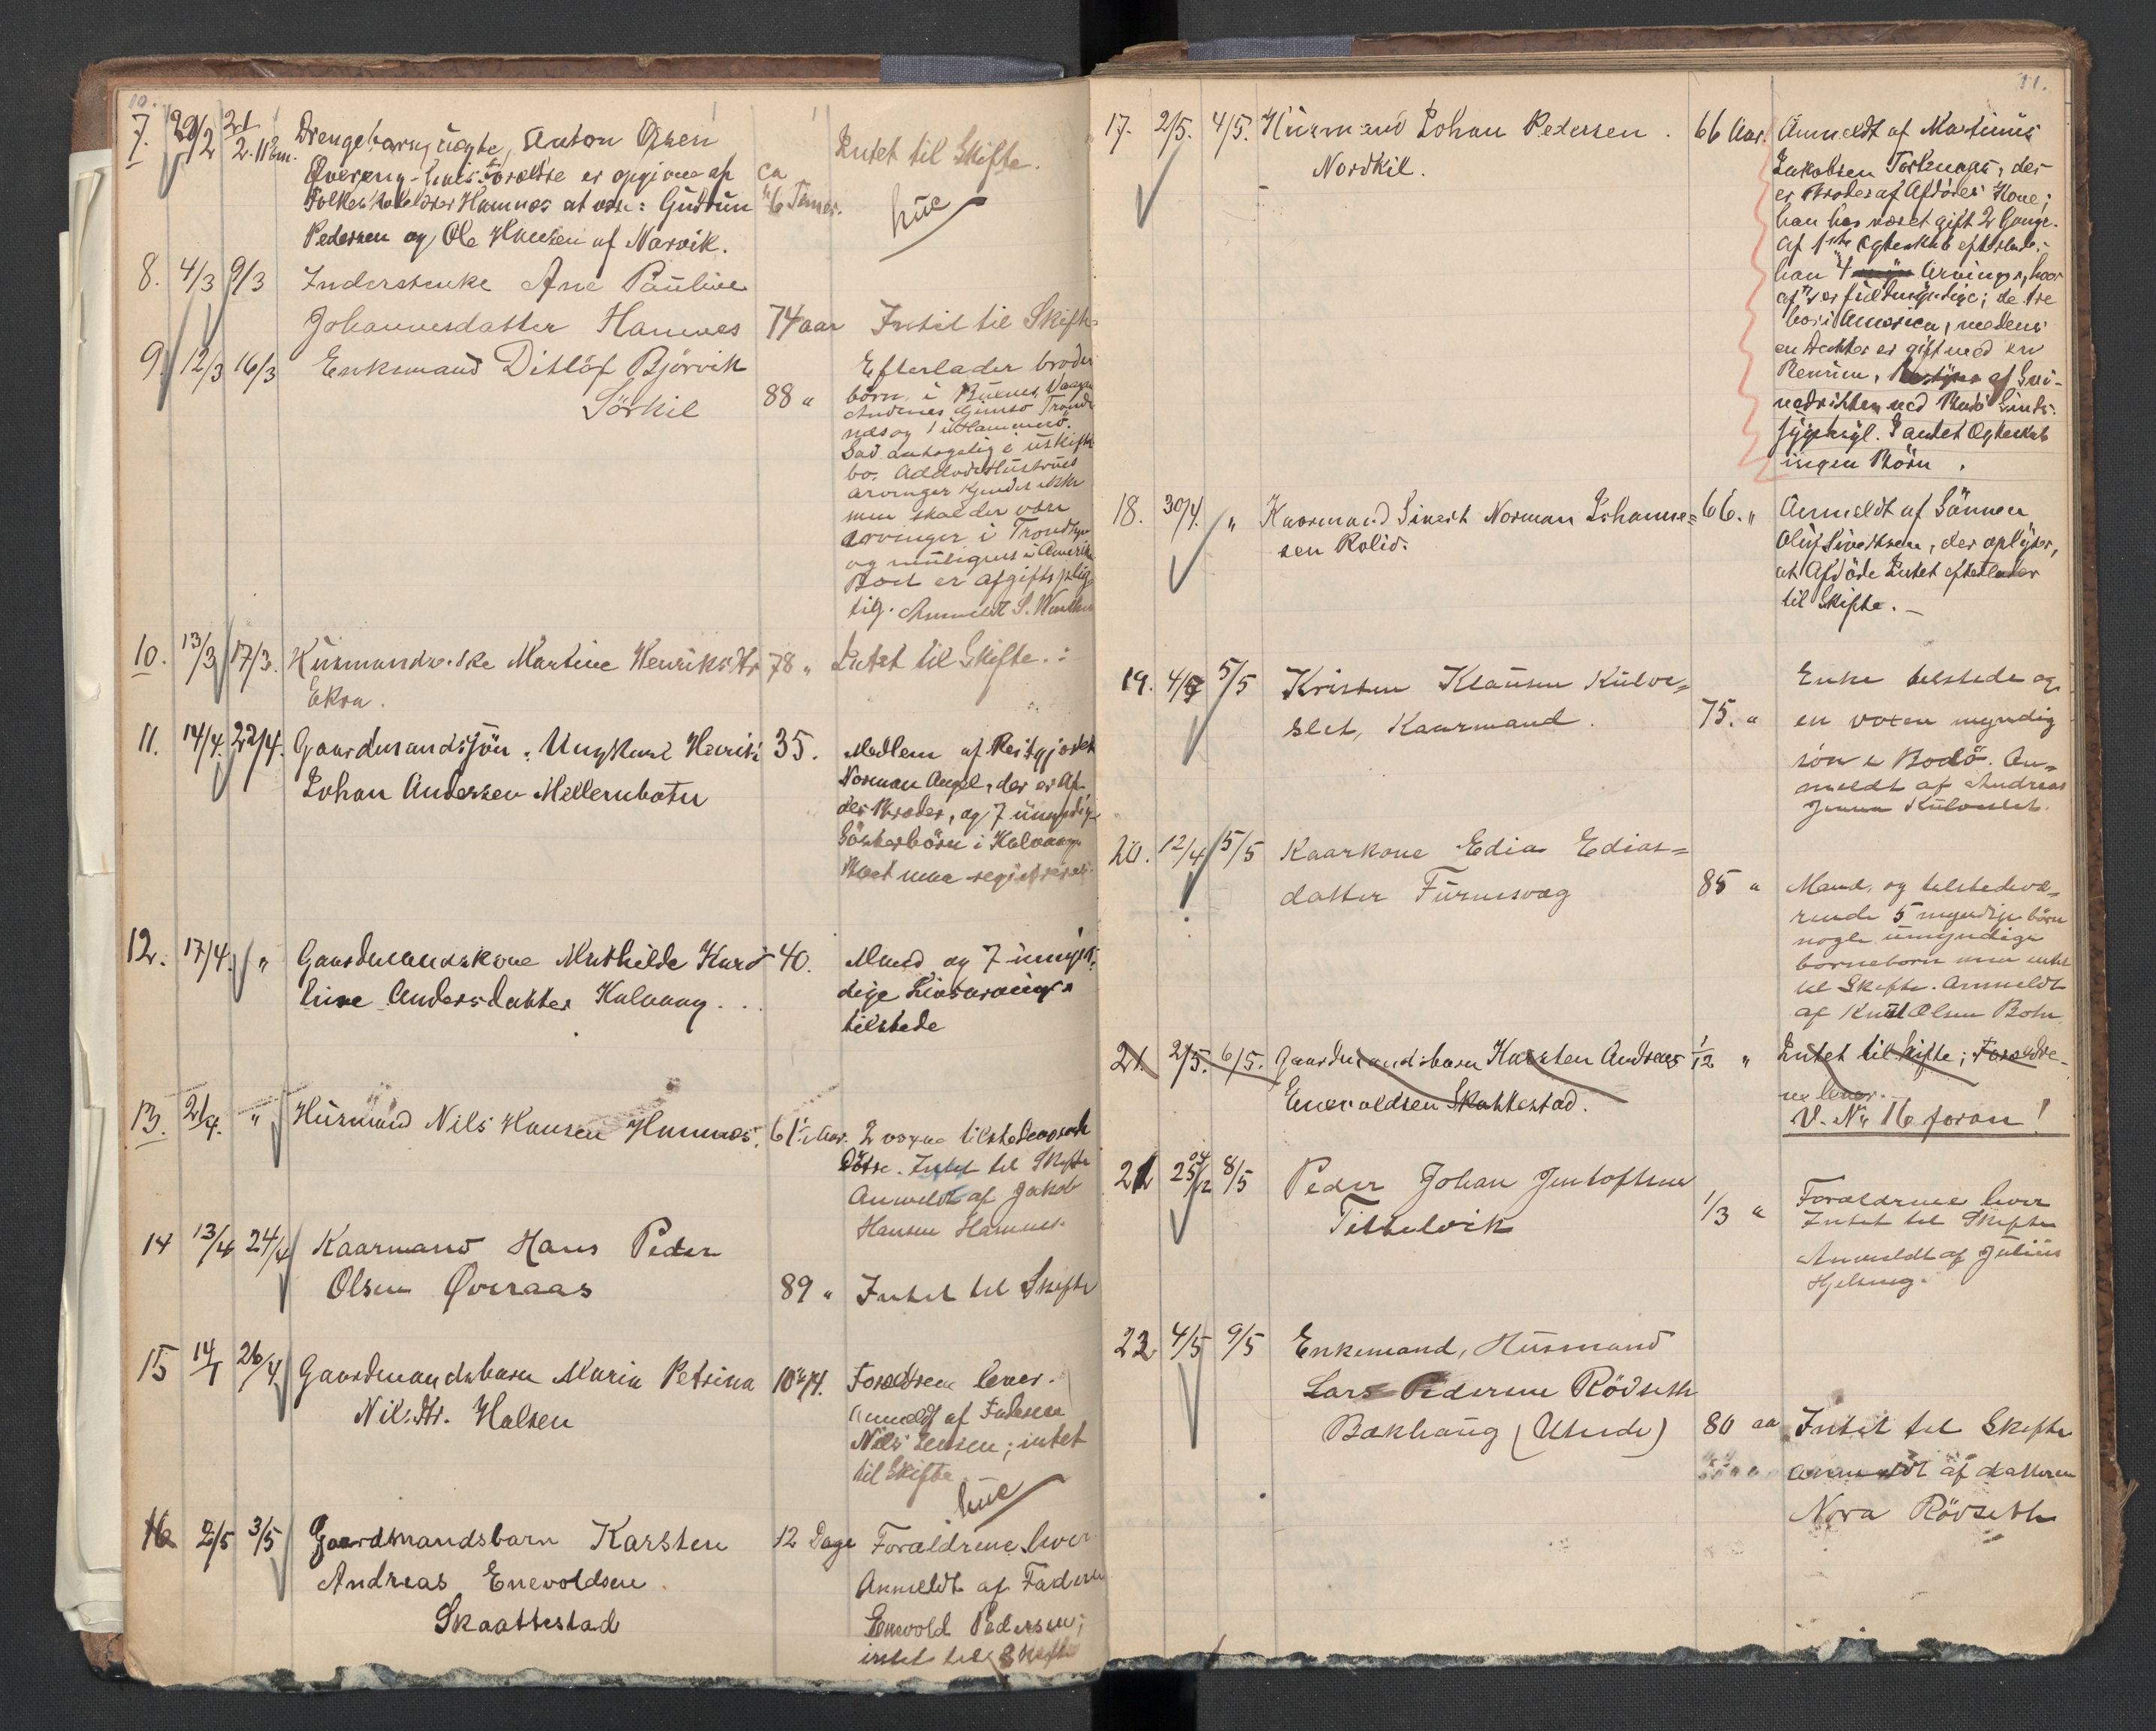 10.
7. 20/2 21/2. 11 Em. Drengebarn, uægte, Anton Olsen
hvis Forældre er opgivne af ca
Folkeskolelærer Hamnes at være: Gudrun 6 Timer. Intet til Skifte.
Pedersen og Ole Hansen af Narvik.
8. 4/3 9/3 Inderstenke Ane Pauline
Johannesdatter Hamnes 74 aar Intet til Skifte
9. 12/3 16/3 Enkemand Ditlöf Björvik Efterlader broder
Sörkil 88 " börn i Buknes, Vaagan
Andenes Gimsö Trond
næs og 1 i Hammerö.
Sad antagelig i uskiftet
bo. Afdøde Hustrues
arvinger kjendes ikke
men skal der være
arvinger i Trondhjem
og muligens i Amerika
Boet er afgiftsplig
tig. Anmeldt S.
10. 13/3 17/3. Husmandsenke Martine Henriksdtr 78 " Intet til Skifte.
Ekra.
11. 14/4. 22/4. Gaardmandssön, Ungkarl Henrik 35. Mellem af
Johan Andersen Mellembotn Norman Angel, der er Af.
des Broder, og 7 umyndige
Sösterbörn i Kalvaag
Boet maa registreres.
12. 17/4. " Gaardmandskone Mathilde Karo 40. Mand og 7 umyn
line Andersdatter Kalvaag. dige Livsarvinger
tilstede
13. 21/4. " Husmand Nils Hansen Hamnes. 61½ Aar. 2 voxne tilstedeværende
Døtre. Intet til Skifte
Anmeldt af Jakob
Hansen Hamnes.
14 13/4 24/4 Kaarmand Hans Peder
Olsen Överaas 89 " Intet til Skifte
15 14/1 26/4 Gaardmandsbarn Maria Petrina Forældrene lever.
Nilsdtr. Halsen Anmeldt af Faderen
Nils Jensen; intet
til Skifte
16 2/5 3/5 Gaardmandsbarn Karsten 12 Dage Forældrene lever
Andreas Enevoldsen Anmeldt af Faderen
Skaattestad Enevold Pedersen;
intet til Skifte
11.
17. 2/5. 4/5. Husmand Johan Pedersen. 66 Aar. Anmeldt af Martinus
Nordkil. Jakobsen der
er Broder af Afdödes Kone;
han har været gift 2 Gange.
Af 1ste Ægteskab efterlader
han 4 Arvinger, hvor
af er fuldmyndige; de tre
bor i America, medens
en Datter er gift med en
af
ved Bodö Sinds-
sygeasyl. I andet Ægteskab
ingen Börn.
18. 30/4. " Kaarmand Sivert Norman Johanne= 66. " Anmeldt af Sönnen
sen Rolid. Oluf Sivertsen, der oplyser,
at Afdöde Intet efterlader
til Skifte.
19. 4/5 5/5 Kristen Klausen Kulve= Enke tilstede og
slet, Kaarmand. 75. " en voxen myndig
sön i Bodö. An=
meldt af Andreas
Jensen Kulveslet.
20. 12/4 5/5 Kaarkone Edia Edias=
datter Furnesvag 85 " Mand og tilstedevæ=
rende 5 myndige börn
nogle umyndige
barnebörn men intet
til Skifte. Anmeldt
af Knut Olsen Botn
21. 2/5. 6/5. Gaardmandsbarn Karsten Andreas 1/12 " Intet til Skifte; Forældre-
Enevoldsen Skaattestad. ne lever.
V. No 16 foran!
21 25/12 04 8/5 Peder Johan Jentoftsen
Tittelvik 1/3 " Forældrene lever
Intet til Skifte
Anmeldt af Julius
22 4/5 9/5 Enkemand, Husmand
Lars Pedersen Rödseth
Bakhaug (Ulsnde) 80 aa Intet til Skifte
Anmeldt af datteren
Nora Rödseth